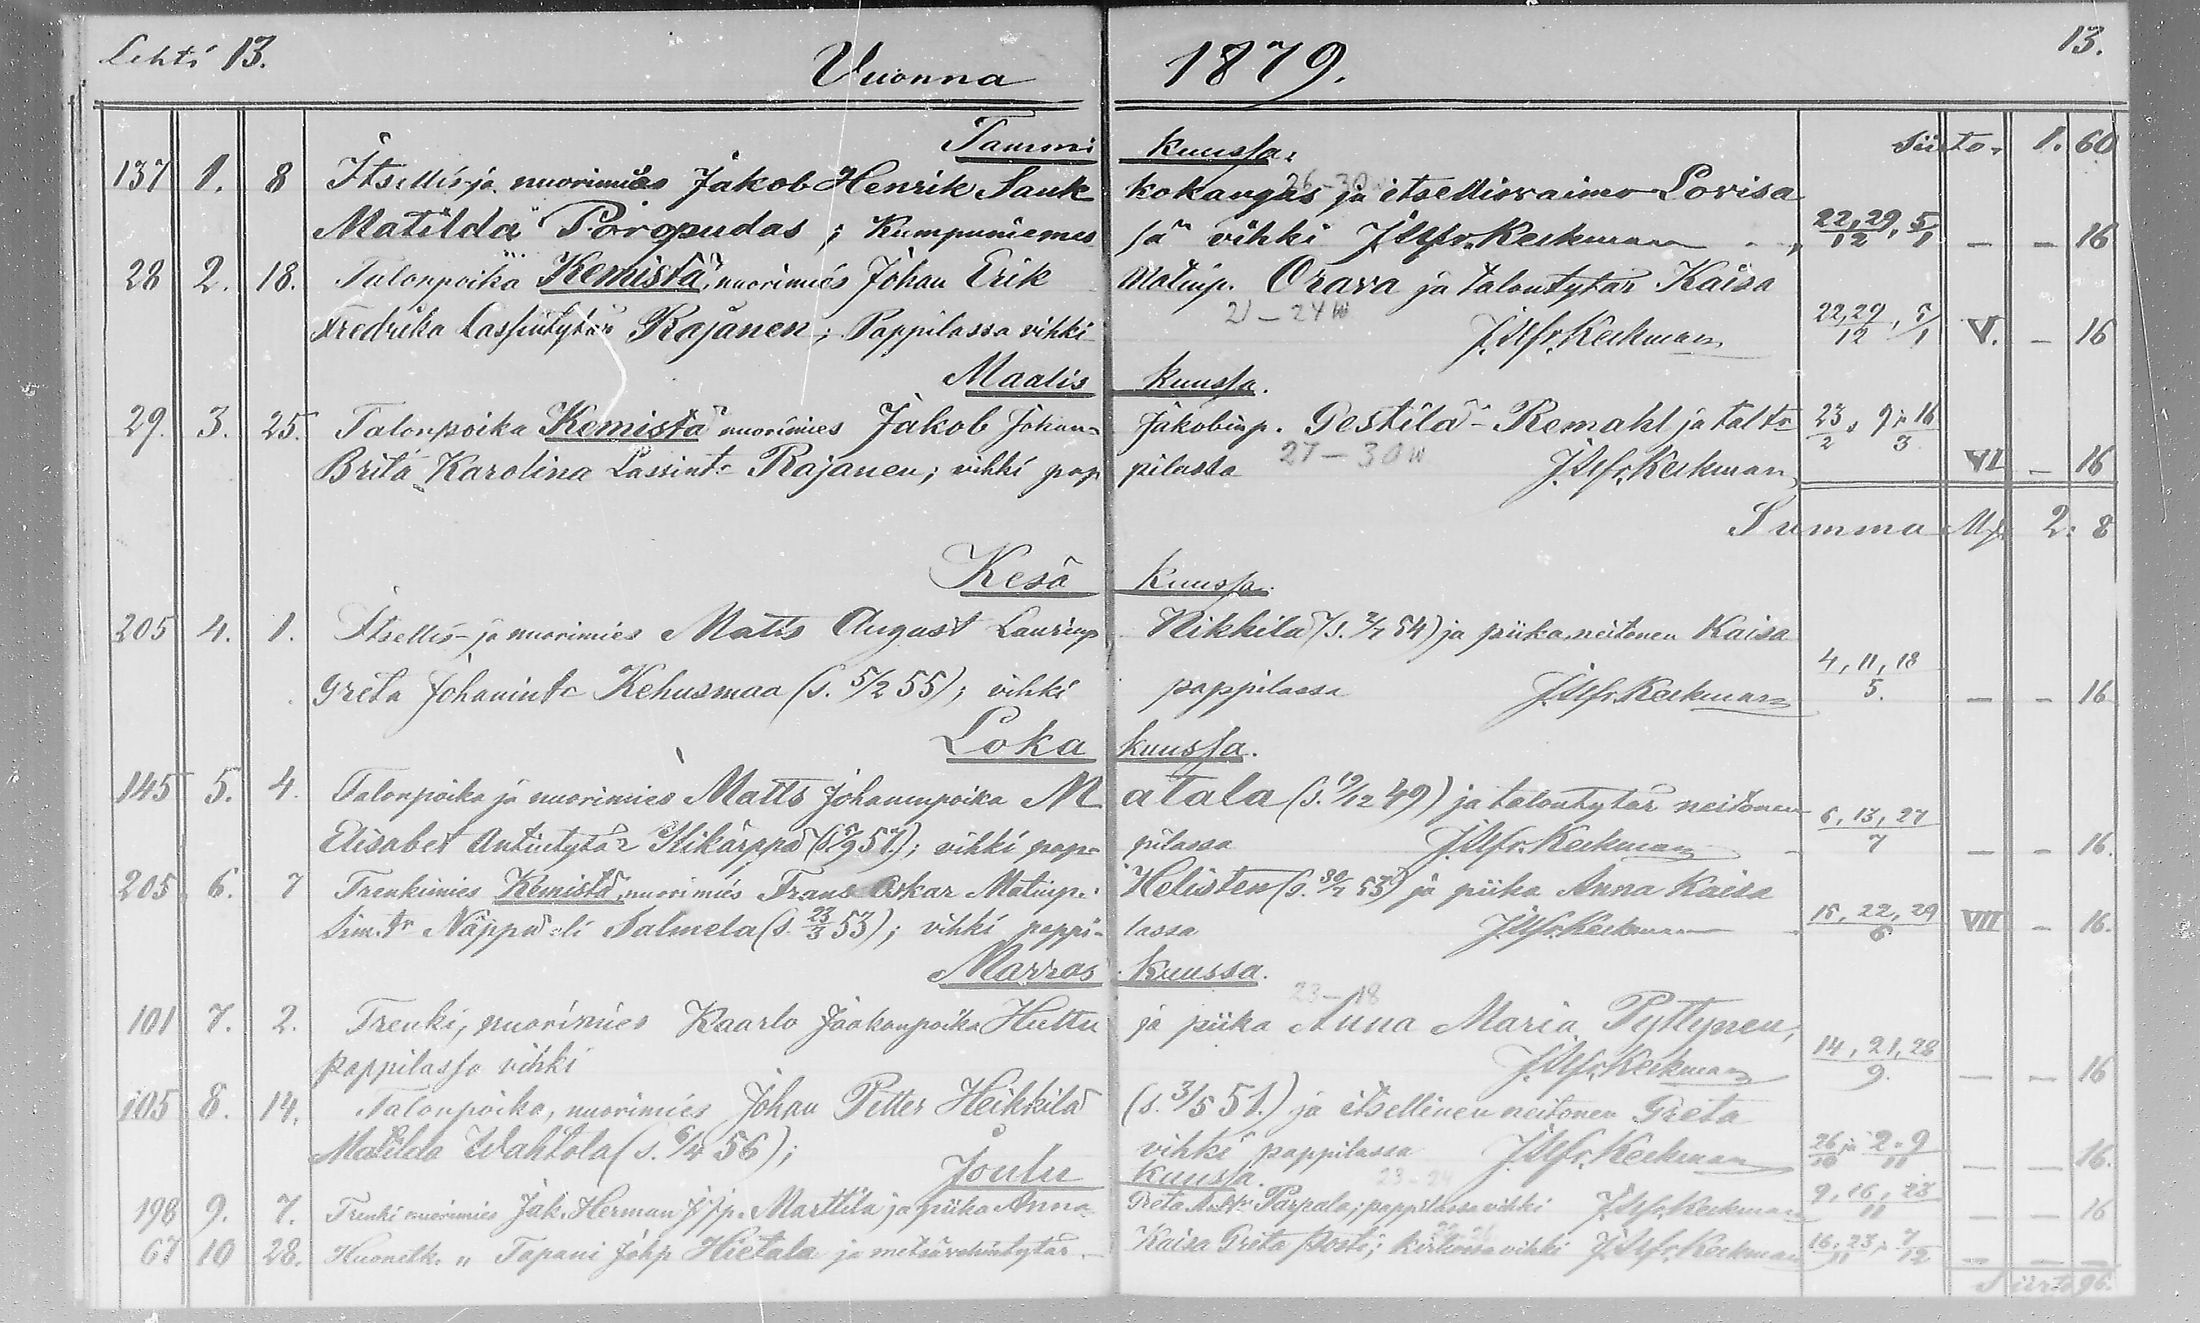 Lehti 13. Vuonna 1879. 13.
Tammi kuussa. Siirto 1. 60
137 1. 8 Itsellis ja nuorimies Jakob Henrik Sauk kokangas ja itsellisvaimo Lovisa 26-30w
Matilda Poropudas; Kumpuniemes sä vihki J. Alfr. Keckman 22,29/12, 5/1 — — 16
28 2. 18. Talonpoika Kemistä, nuorimies Johan Erik Matinp. Orava ja talontytär Kaisa
Fredrika Lassintytär Rajanen; Pappilassa vihki 21-24w J. Alfr. Keckman 22,29/12, 5/1 V. — 16
Maalis kuussa.
29. 3. 25. Talonpoika Kemistä nuorimies Jakob Johan Jakobinp. Gestilä-Remahl ja tal tr 23/2, 9 ja 16/3
Brita Karolina Lassintr Rajanen; vihki pap pilassa 27-30w J. Alfr. Keckman VI — 16
Summa Mk 2: 8
Kesä kuussa.
205 4. 1. Itsellis- ja nuorimies Matts August Laurinp. Nikkilä (s. 2/7 54) ja piika neitonen Kaisa
Greta Johanintr Kehusmaa (s. 5/2 55); vihki pappilassa J. Alfr. Keckman 4, 11, 18/5. — — 16
Loka kuussa.
145 5. 4. Talonpoika ja nuorimies Matts Johaninpoika M atala (s. 19/12 49) ja talontytär neitonen
Elisabet Antintytär Kikärppä (s. 5/9 57.); vihki pap- pilassa J. Alfr. Keckman 6, 13, 27/7 — — 16.
205 6. 7 Trenkimies Kemistä, nuorimies Frans Oskar Matinp. Helisten (s. 30/7 53) ja piika Anna Kaisa
Sim.tr Näppä eli Salmela (s. 23/3 53); vihki pappi- lassa J. Alfr. Keckman 15, 22, 29/6 VII — 16.
Marras kuussa.
101 7. 2. Trenki, nuorimies Kaarlo Jaakonpoika Huttu ja piika Anna Maria Pyttynen, 23-18
pappilassa vihki J. Alfr. Keckman 14, 21, 28/9. — — 16
105 8. 14. Talonpoika, nuorimies Johan Petter Heikkilä (s. 3/5 51.) ja itsellinen neitonen Greta
Matilda Wahtola (s. 6/4 56); vihki pappilassa J. Alfr. Keckman 26/10 ja 2, 9/11 — — 16.
Joulu kuussa. 23-24
198 9. 7. Trenki nuorimies Jak. Herman Jjp. Marttila ja piika Anna Greta Parpala; pappilassa vihki J. Alfr. Keckman 9, 16, 23/11 — — 16
67 10 28. Huonelk. „ Tapani Johp. Hietala ja metsävahintytär Kaisa Greta Posti; kirkossa vihki J. Alfr. Keckman 16, 23/11 ja 7/12 — — —
Siirto 96.